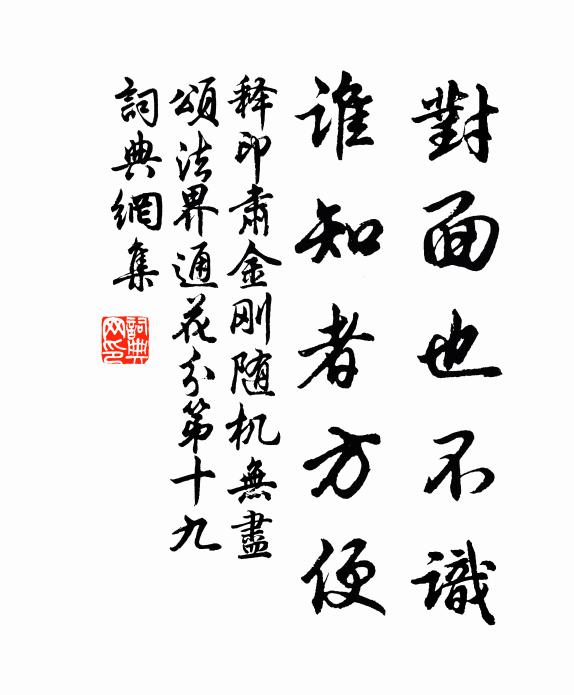 對面也不識
谁知者方便
释印肃金刚随机無盡
頌法界通花分第十九
詞典網集
詞典网印